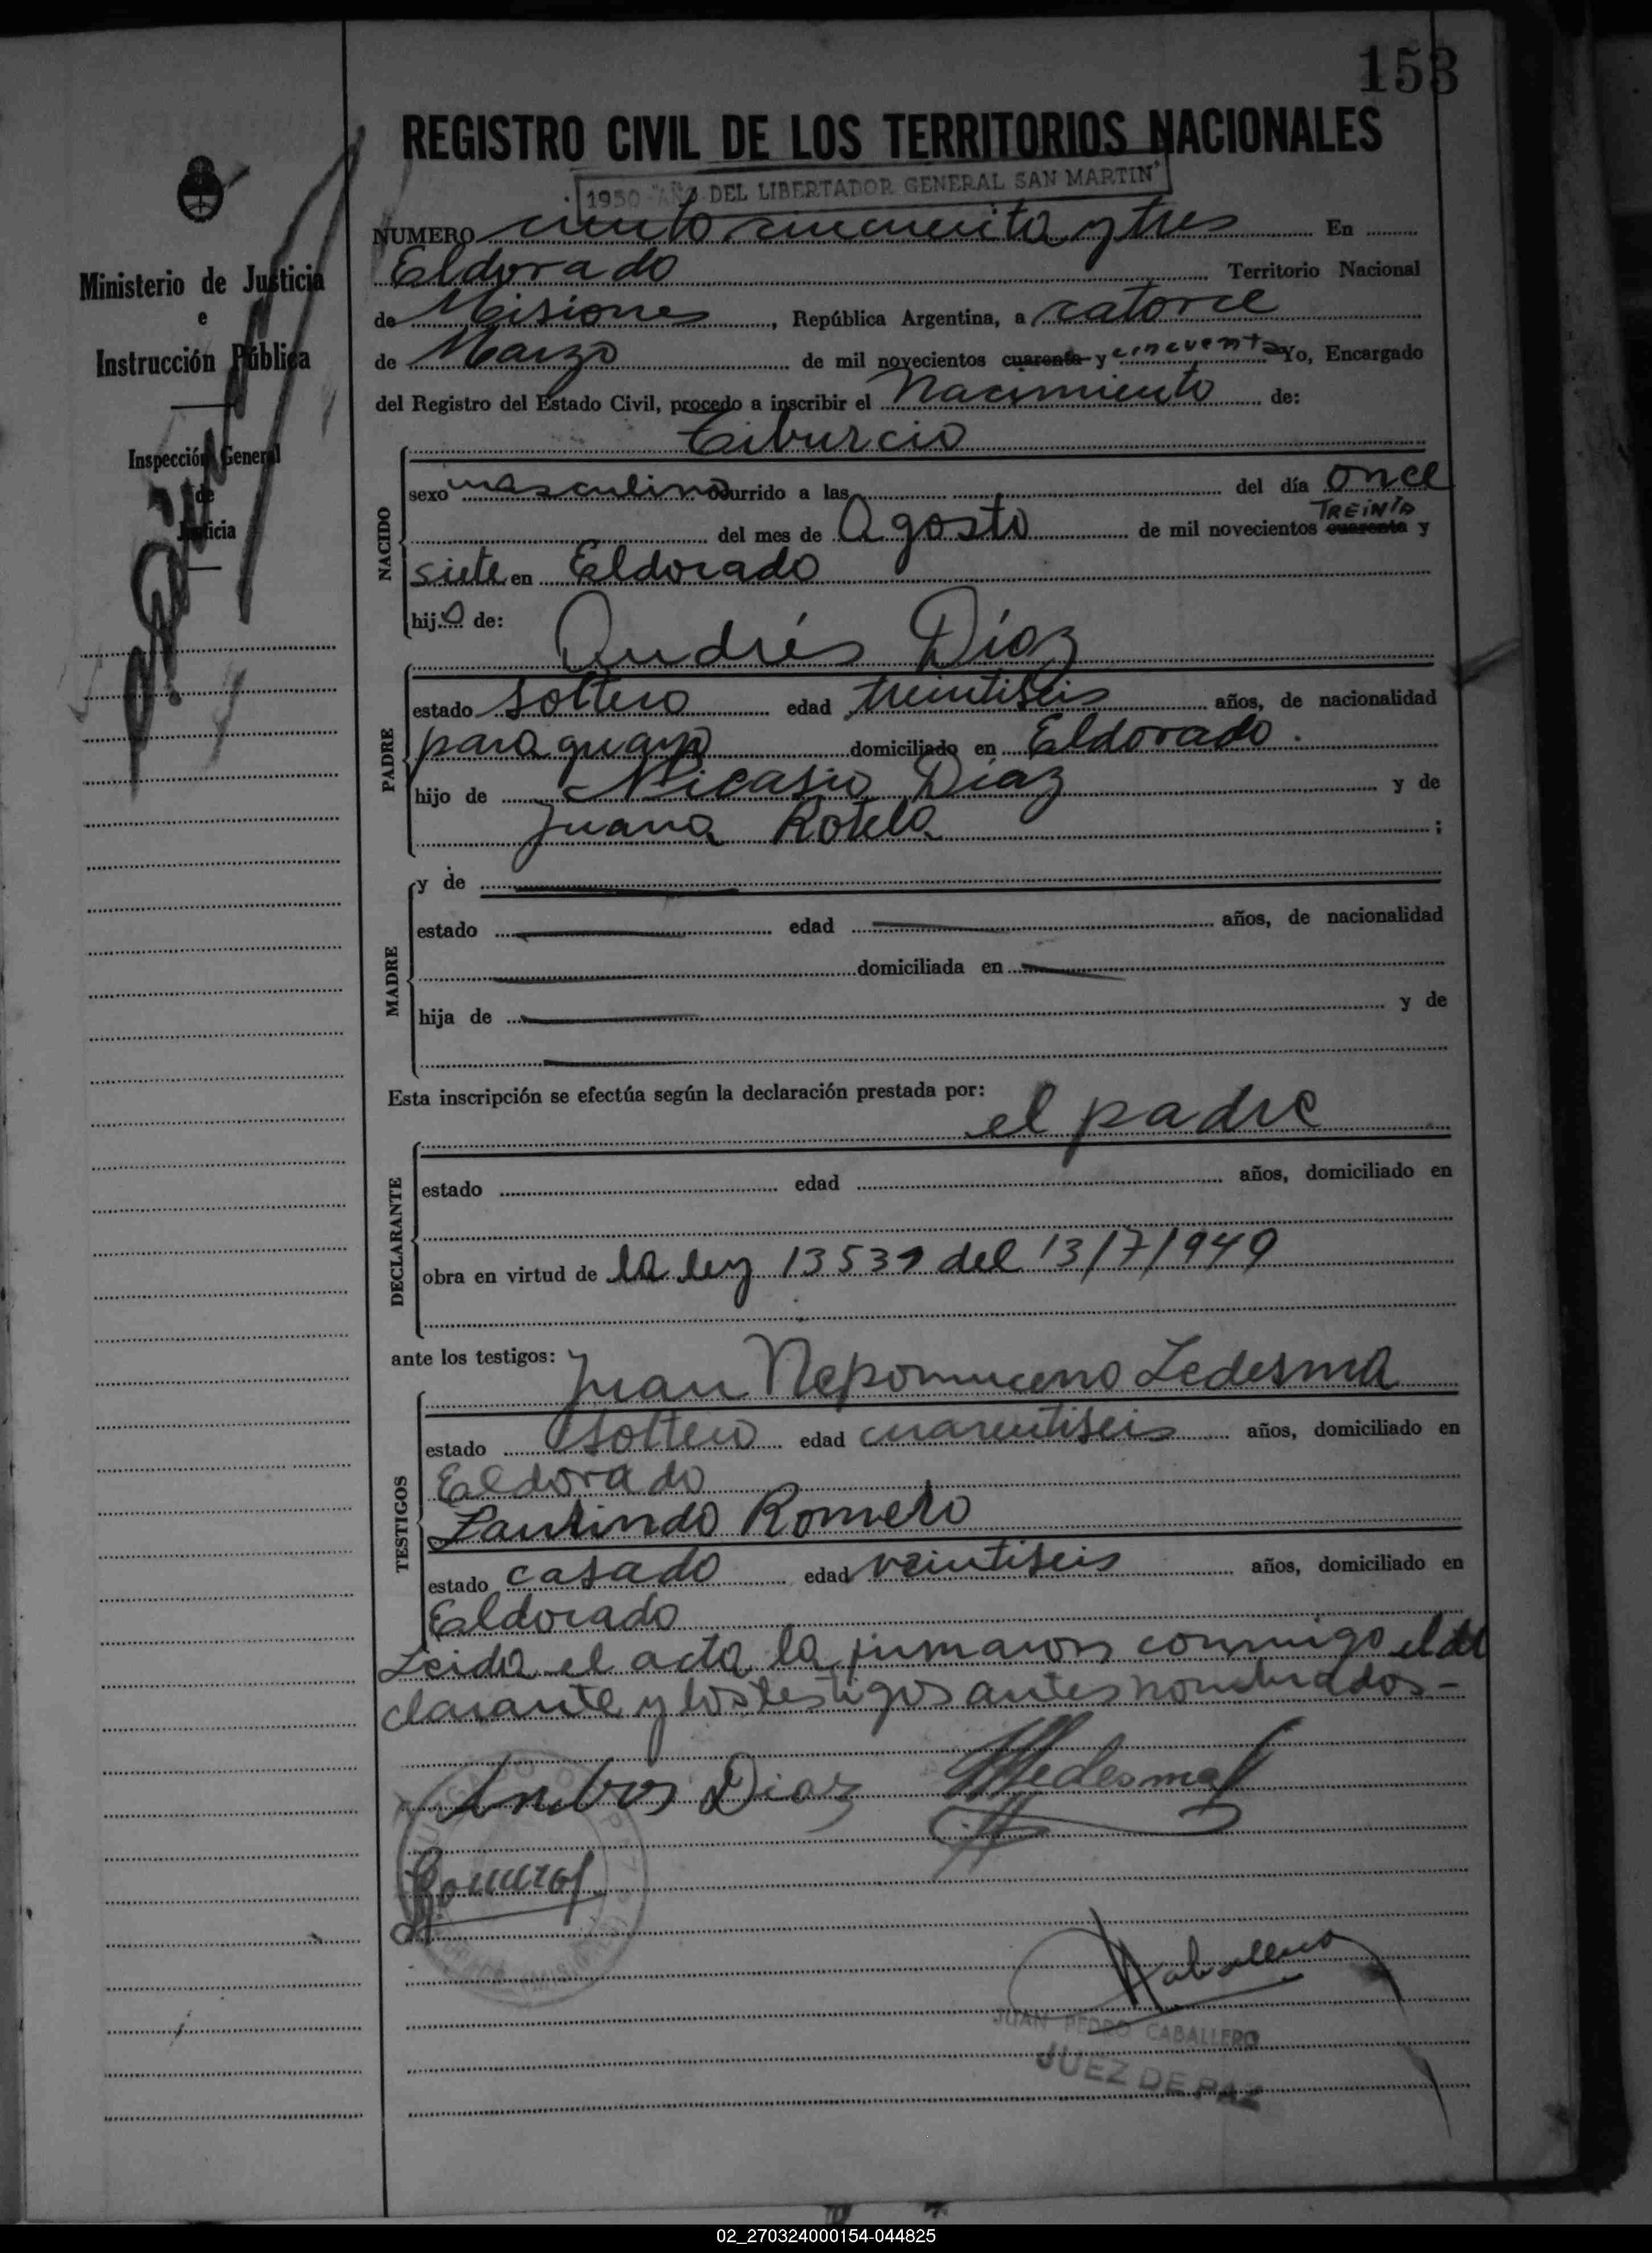 153
REGISTRO CIVIL DE LOS TERRITORIOS NACIONALES
1950 "AÑO DEL LIBERTADOR GENERAL SAN MARTIN"
Ministerio de Justicia
e
Instrucción Pública
Inspección General
de
Justicia
NUMERO ciento cincuenta y tres En
Eldorado Territorio Nacional
de Misiones, República Argentina, a catorce
de Marzo de mil novecientos cuarenta y cincuenta Yo, Encargado
del Registro del Estado Civil, procedo a inscribir el Nacimiento de:
Tiburcio
NACIDO
sexo masculino ocurrido a las del día once
TREINTA
del mes de Agosto de mil novecientos cuarenta y
siete en Eldorado
hijo de:
Andrés Díaz
PADRE
estado soltero edad treintiseis años, de nacionalidad
paraguayo domiciliado en Eldorado.
hijo de Nicasio Díaz y de
Juana Rotela ;
MADRE
y de
estado edad años, de nacionalidad
domiciliada en
hija de y de
Esta inscripción se efectúa según la declaración prestada por:
el padre
DECLARANTE
estado edad años, domiciliado en
obra en virtud de la ley del 13/7/1949
ante los testigos:
Juan Nepomuceno Ledesma
TESTIGOS
estado soltero edad cuarentiseis años, domiciliado en
Eldorado
Romero
estado casado edad veintiseis años, domiciliado en
Eldorado
Leida el acta la firmaron conmigo el de
clarante y los testigos antes nombrados-
Diaz Ledesma
JUAN PEDRO CABALLERO
JUEZ DE PAZ
02_270324000154-044825